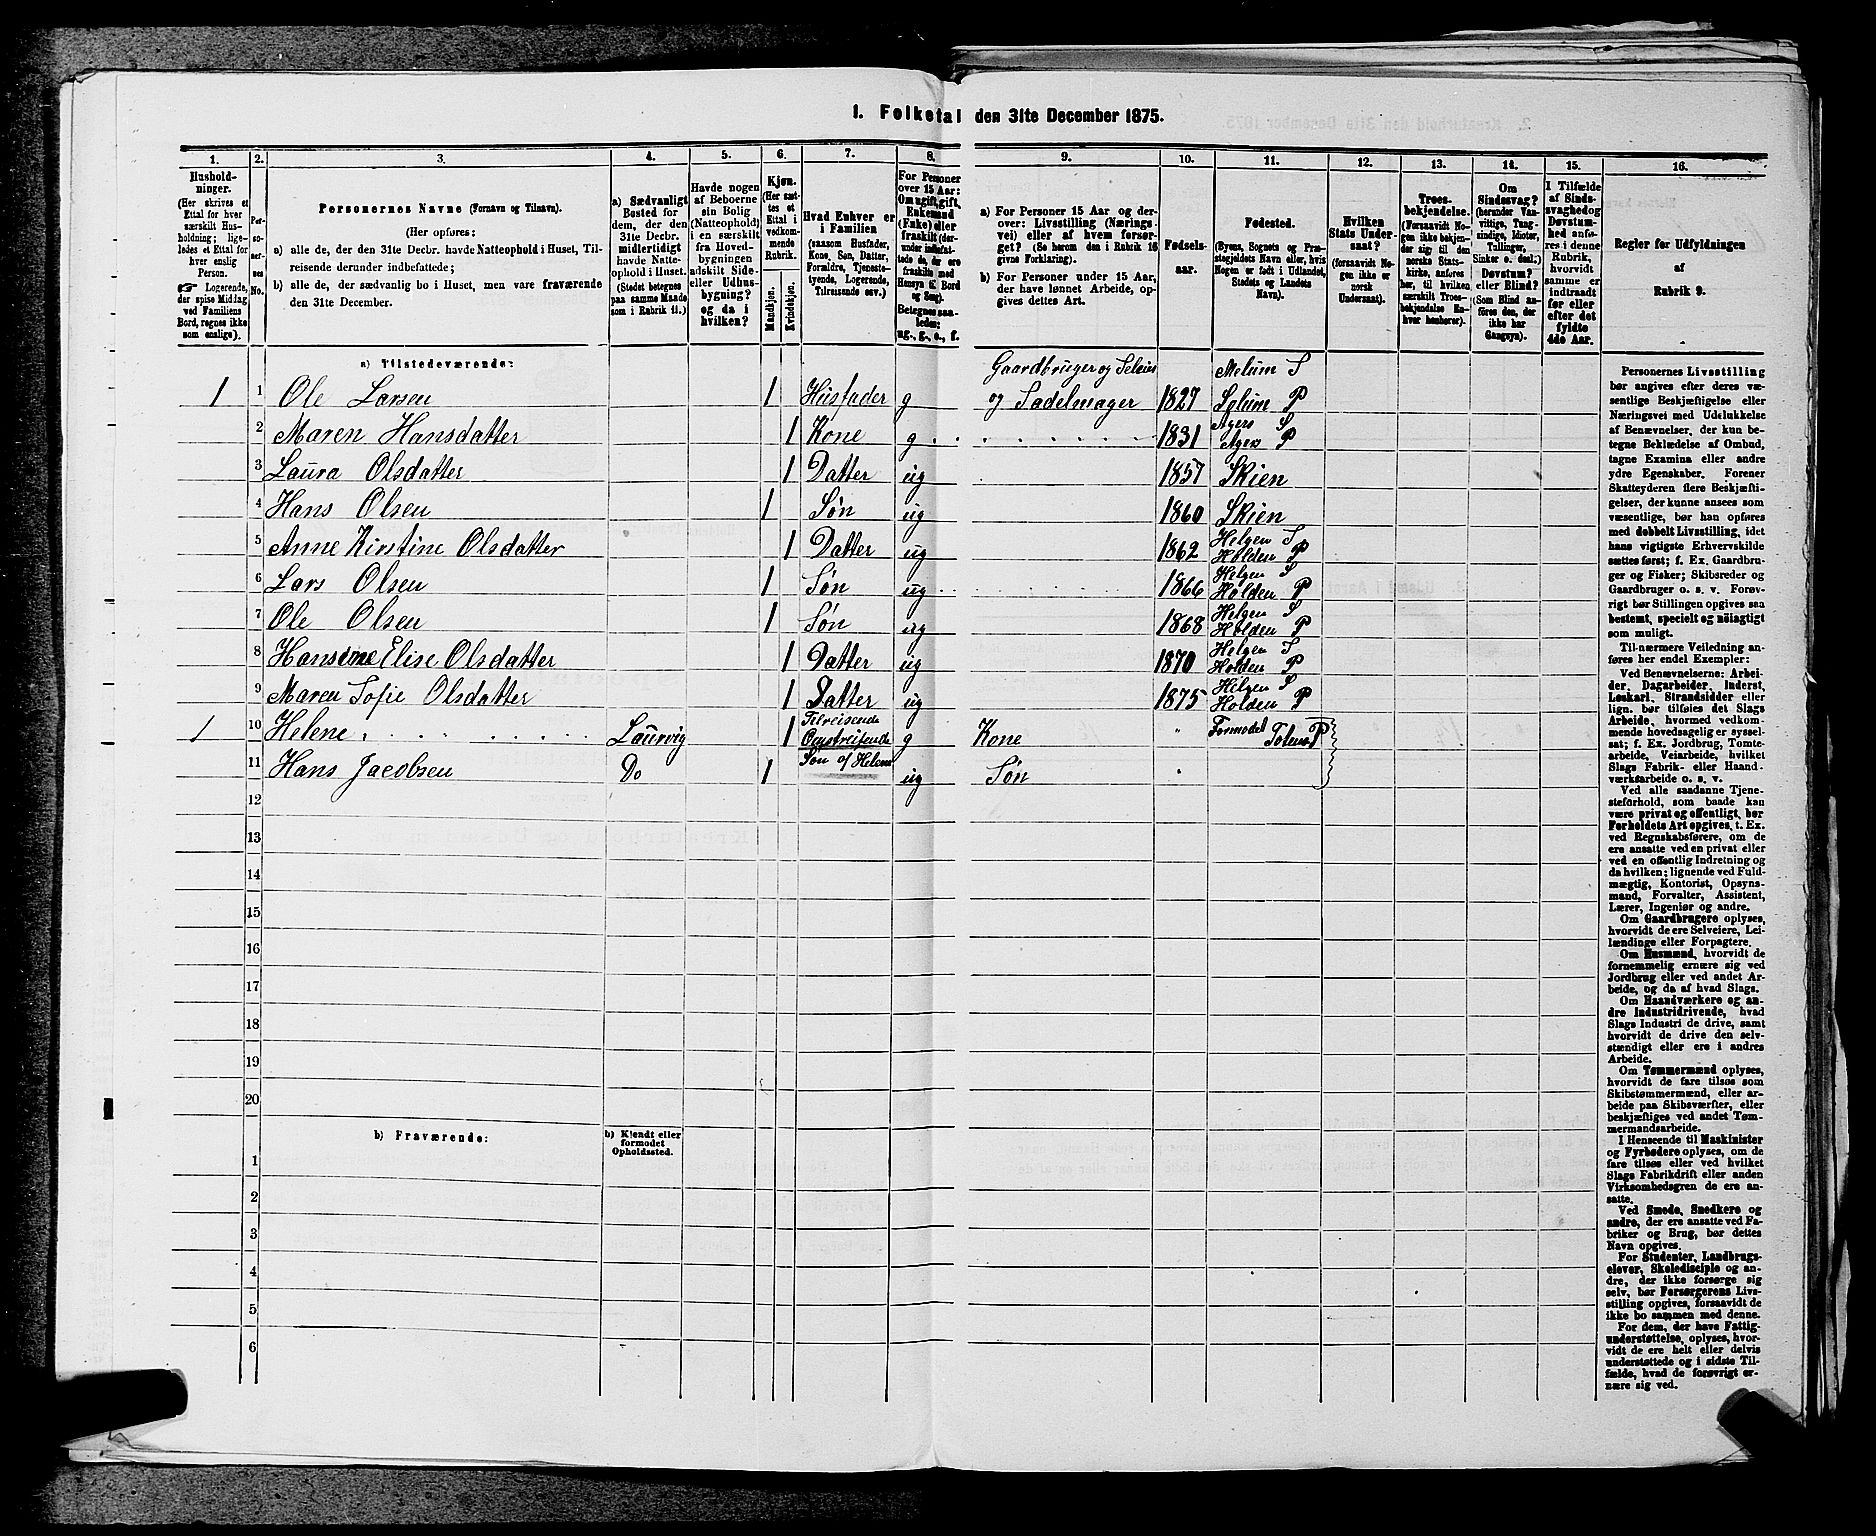 1. Folketal den 31te December 1875.
1. 2. 3. 4. 5. 6. 7. 8. 9. 10. 11. 12. 13. 14. 15. 16.
Hushold-
ninger.
(Her skrives et
Ettal for hver
særskilt Hus-
holdning; lige-
ledes et Ettal
for hver enslig
Person.
☞ Logerende,
der spise Middag
ved Familiens
Bord, regnes ikke
som enslige).
Per-
so-
ner-
nes
No.
Personernes Navne (Fornavn og Tilnavn).
(Her opføres:
a) alle de, der den 31te Decbr. havde Natteophold i Huset, Til-
reisende derunder indbefattede;
b) alle de, der sædvanlig bo i Huset, men vare fraværende
den 31te December.
a) Sædvanligt
Bosted for
dem, der den
31te Decbr.
midlertidigt
havde Natte-
ophold i Huset.
(Stedet betegnes
paa samme Maade
som i Rubrik 11.)
Havde nogen
af Beboerne
sin Bolig
(Natteophold)
i en særskilt
fra Hoved-
bygningen
adskilt Side-
eller Udhus-
bygning?
og da i
hvilken?
Kjøn.
(Her sæt-
tes et
Ettal i
vedkom-
mende
Rubrik.
Mandkjøn.
Kvindekjøn.
Hvad Enhver er
i Familien
(saasom Husfader,
Kone, Søn, Datter,
Forældre, Tjeneste-
tyende, Logerende,
Tilreisende osv.)
For Personer
over 15 Aar:
Om ugift, gift,
Enkemand
(Enke) eller
fraskilt (der-
under indbefat-
tede de, der ere
fraskilte med
Hensyn til Bord
og Seng).
Betegnes saa-
ledes:
ug., g., e., f.
a) For Personer 15 Aar og der-
over: Livsstilling (Nærings-
vei) eller af hvem forsør-
get? (Se herom den i Rubrik 16
givne Forklaring).
b) For Personer under 15 Aar,
der have lønnet Arbeide, op-
gives dettes Art.
Fødsels-
aar.
Fødested.
(Byens, Sognets og Præ-
stegjeldets Navn eller, hvis
Nogen er født i Udlandet,
Stedets og Landets
Navn).
Hvilken
Stats Under-
saat?
(forsaavidt No-
gen ikke er
norsk
Undersaat).
Troes-
bekjendelse.
(Forsaavidt No-
gen ikke bekjen-
der sig til den
norske Stats-
kirke, anføres
her, til hvilken
særskilt Troes-
bekjendelse En-
hver henhører).
Om
Sindssvag?
(herunder Van-
vittige, Tung-
sindige, Idioter,
Tullinger,
Sinker o. desl.)
Døvstum?
eller Blind?
(Som Blind an-
føres den, der
ikke har
Gangsyn).
I Tilfælde
af Sinds-
svaghed og
Døvstum-
hed anfø-
res i denne
Rubrik,
hvorvidt
samme er
indtraadt
før eller
efter det
fyldte
4de Aar.
Regler for Udfyldningen
af
Rubrik 9.
a) Tilstedeværende:
Gaardbruger og Selveier Melum S
1 1 Ole Larsen 1 Husfader g og Sadelmager 1827 Solum P
Agers S
2 Maren Hansdatter 1 Kone g 1831 Agers P
3 Laura Olsdatter 1 Datter ug 1857 Skien
4 Hans Olsen 1 Søn ug 1860 Skien
Helgen S
5 Anne Kirstine Olsdatter 1 Datter ug 1862 Holden P
Helgen S
6 Lars Olsen 1 Søn ug 1866 Holden P
Helgen S
7 Ole Olsen 1 Søn ug 1868 Holden P
Helgen S
8 Hansine Elise Olsdatter 1 Datter ug 1870 Holden P
Helgen S
9 Maren Sofie Olsdatter 1 Datter ug 1875 Holden P
Tilreisende
1 10 Helene Laurvig 1 Omstreifende g Kone " Formodet Totens P
11 Hans Jacobsen Do 1 Søn af Helene ug Søn "
12
13
14
15
16
17
18
19
20
b) Fraværende:
b) Kjendt eller
formodet
Opholdssted.
1
2
3
4
5
6
Personernes Livsstilling
bør angives efter deres væ-
sentlige Beskjæftigelse eller
Næringsvei med Udelukkelse
af Benævnelser, der kun be-
tegne Beklædelse af Ombud,
tagne Examina eller andre
ydre Egenskaber. Forener
Skatteyderen flere Beskjæfti-
gelser, der kunne ansees som
væsentlige, bør han opføres
med dobbelt Livsstilling, idet
hans vigtigste Erhvervskilde
sættes først; f. Ex. Gaardbru-
ger og Fisker; Skibsreder og
Gaardbruger o. s. v. Forøv-
rigt bør Stillingen opgives saa
bestemt, specielt og nøiagtigt
som muligt.
Til nærmere Veiledning an-
føres her endel Exempler:
Ved Benævnelserne: Arbei-
der, Dagarbeider, Inderst,
Løskarl, Strandsidder eller
lign. bør tilføies det Slags
Arbeide, hvormed vedkom-
mende hovedsagelig er syssel-
sat; f. Ex. Jordbrug, Tomte-
arbeide, Veiarbeide, hvilket
Slags Fabrik- eller Haand-
værksarbeide o. s. v.
Ved alle saadanne Tjene-
steforhold, som baade kan
være privat og offentligt, bør
Forholdets Art opgives, t. Ex.
ved Regnskabsførere, om de
ere ansatte ved en privat eller
ved en offentlig Indretning og
da hvilken; lignende ved Fuld-
mægtig, Kontorist, Opsyns-
mand, Forvalter, Assistent,
Lærer, Ingeniør og andre.
Om Gaardbrugere oplyses,
hvorvidt de ere Selveiere, Lei-
lændinge eller Forpagtere.
Om Husmænd, hvorvidt de
fornemmelig ernære sig ved
Jordbrug eller ved andet Ar-
beide, og da af hvad Slags.
Om Haandværkere og an-
dre Industridrivende, hvad
Slags Industri de drive, samt
hvorvidt de drive den selv-
stændigt eller ere i andres
Arbeide.
Om Tømmermænd oplyses,
hvorvidt de fare tilsøs som
Skibstømmermænd, eller ar-
beide paa Skibsværfter, eller
beskjæftiges ved andet Tøm-
mermandsarbeide.
I Henseende til Maskinister
og Fyrbødere oplyses, om de
fare tilsøs eller ved hvilket
Slags Fabrikdrift eller anden
Virksomhedsgren de ere an-
satte.
Ved Smede, Snedkere og
andre, der ere ansatte ved Fa-
briker og Brug, bør dettes
Navn opgives.
For Studenter, Landbrugs-
elever, Skoledisciple og an-
dre, der ikke forsørge sig
selv, bør Forsørgerens Livs-
stilling opgives, forsaavidt de
ikke bo sammen med denne.
For dem, der have Fattig-
understøttelse, oplyses, hvor-
vidt de ere helt eller delvis
understøttede og i sidste Til-
fælde, hvad de forøvrigt er-
nære sig ved.